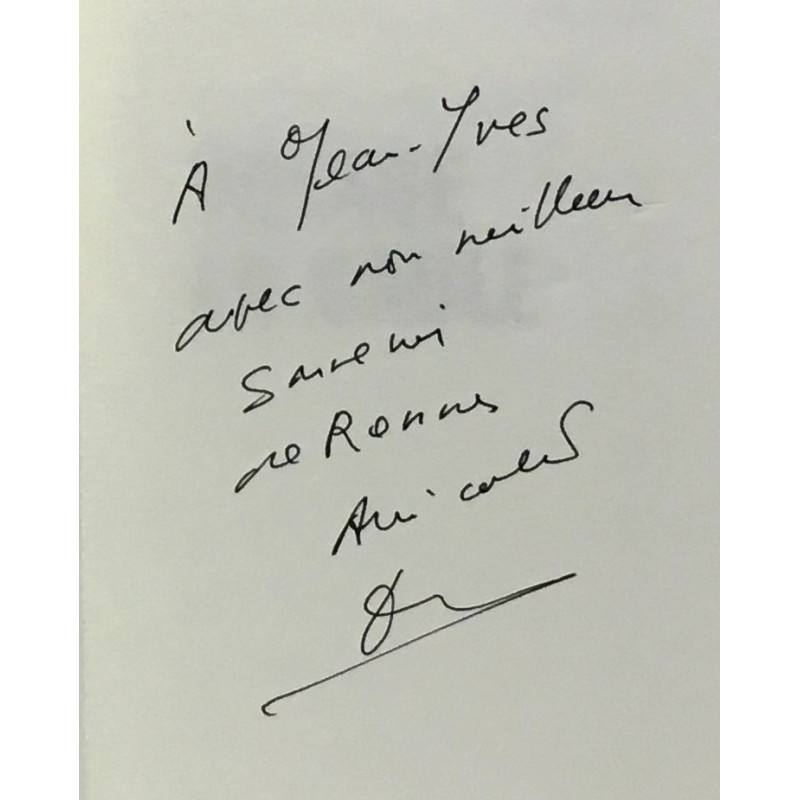 À Jean-Yves
avec mon meilleur
Souvenir
de Rennes
Amicales